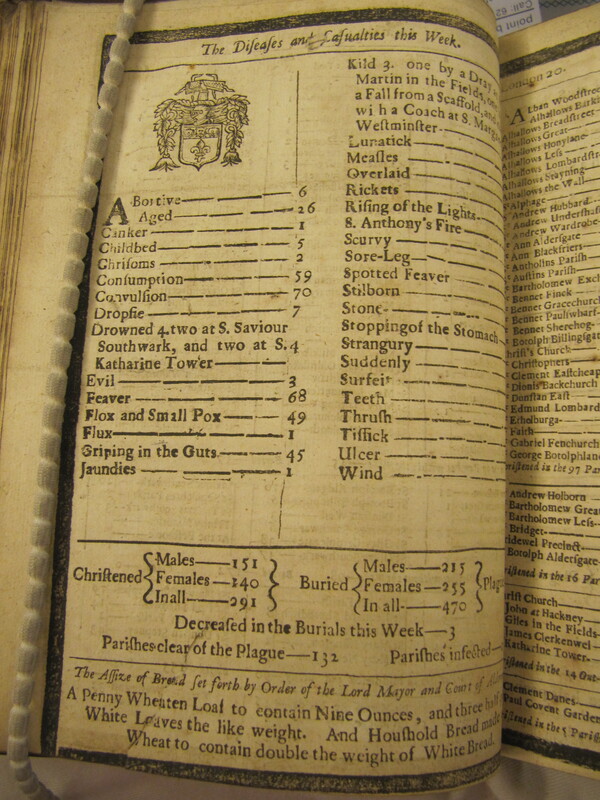 The Diſeaſes and Caſualties this Week.
ABortive 6
Aged 26
Canker 1
Childbed 5
Chriſoms 2
Conſumption 59
Convulſion 70
Dropſie 7
Drowned 4. two at S. Saviour
Southwark, and two at S. 4
Katharine Tower
Evil 3
Feaver 68
Flox and Small Pox 49
Flux 1
Griping in the Guts 45
Jaundies 1
Kild 3. one by a Dray
Martin in the Fields,
a Fall from a Scaffold, and
with a Coach at S. Marga
Weſtminſter
Lunatick
Meaſles
Overlaid
Rickets
Riſing of the Lights
S. Anthony's Fire
Scurvy
Sore-Leg
Spotted Feaver
Stilborn
Stone
Stopping of the Stomach
Strangury
Suddenly
Surfeit
Teeth
Thruſh
Tiſſick
Ulcer
Wind
Chriſtened
Males 151
Females 140
In all 291
Buried
Males 215
Females 255
In all 470
Plag
Decreaſed in the Burials this Week 3
Pariſhes clear of the Plague 132 Pariſhes infected
The Aſſize of Bread ſet forth by Order of the Lord Mayor and Court of
A Penny Wheaten Loaf to contain Nine Ounces, and three half
White Loaves the like weight. And Houſhold Bread made
Wheat to contain double the weight of White Bread.
London 20.
Alban Woodſtree
Alhallows Barki
Alhallows Breadſtree
Alhallows Great
Alhallows Honylane
Alhallows Leſs
Alhallows Lombardſtre
Alhallows Stayning
Alhallows the Wall
Alphage
Andrew Hubbard
Andrew Underſhaf
Andrew Wardrobe
Ann Alderſgate
Ann Blackfriers
Antholins Pariſh
Auſtins Pariſh
Bartholomew Exch
Bennet Finck
Bennet Gracechurch
Bennet Paulſwharf
Bennet Sherehog
Botolph Billingſgat
Chriſt's Church
Chriſtophers
Clement Eaſtcheap
Dionis Backchurch
Dunſtan Eaſt
Edmund Lombard
Ethelburga
Faith
Gabriel Fenchurch
George Botolphlan
riſtened in the 97 Par
Andrew Holborn
Bartholomew Grea
Bartholomew Leſs
Bridget
idewel Precinct
Botolph Alderſgate
riſtened in the 16 Par
riſt Church
John at Hackney
Giles in the Fields
James Clerkenwel
Katharine Tower
riſtened in the 14 Out
Clement Danes
Paul Covent Garden
riſtened in the 5 Pariſh